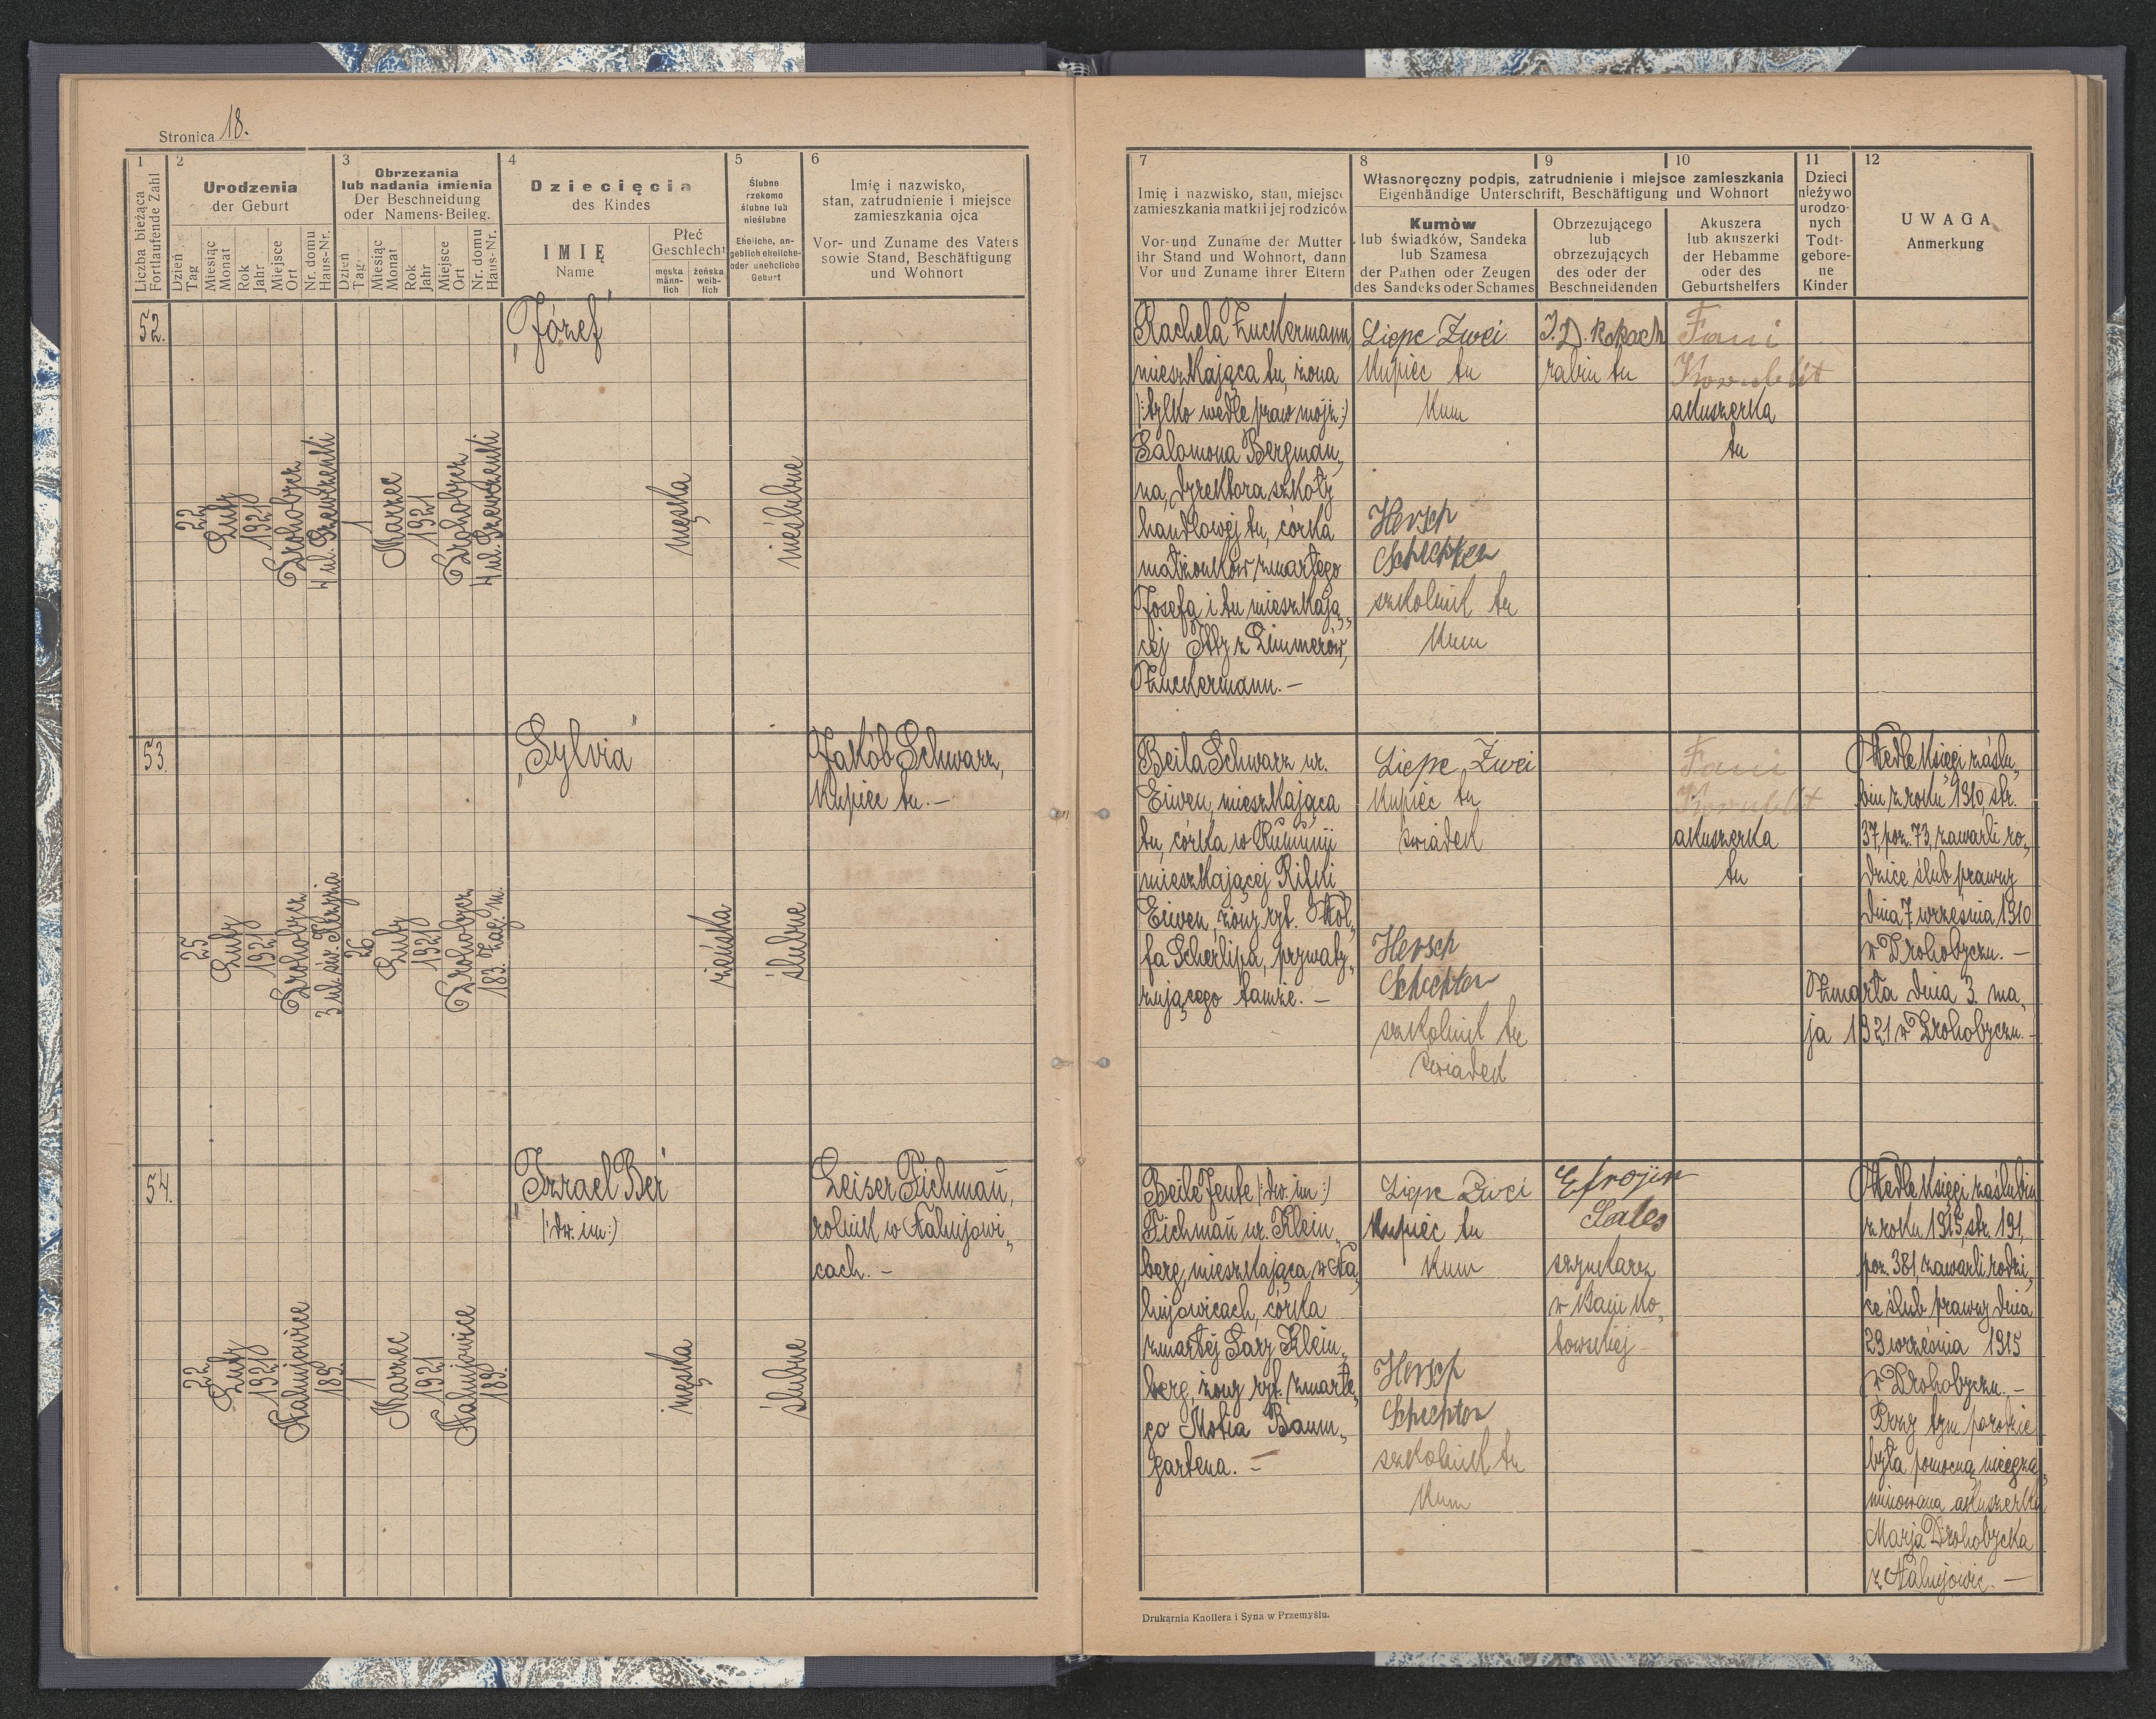 Stronica 18.
1
2
Urodzenia
der Geburt
3
Obrzezania
lub nadania imienia
Der Beschneidung
oder Namens-Beileg.
4
Dziecięcia
des Kindes
5
Ślubne
rzekomo
ślubne lub
nieślubne
Eheliche, an-
geblich eheliche-
oder unehcliche
Geburt
6
Imię i nazwisko,
stan, zatrudnienie i miejsce
zamieszkania ojca
Vor- und Zuname des Vaters
sowie Stand, Beschäftigung
und Wohnort
Liczba bieżąca
Fortlaufende Zahl
Dzień
Tag
Miesiąc
Monat
Rok
Jahr
Miejsce
Ort
Nr. domu
Haus-Nr.
Dzień
Tag
Miesiąc
Monat
Rok
Jahr
Miejsce
Ort
Nr. domu
Haus-Nr.
IMIĘ
Name
Płeć
Geschlecht
męska
männ-
lich
żeńska
weib-
lich
52.
22
Luty
1921
Drohobycz
4 ul. Szewczenki
1
Marzec
1921
Drohobycz
4 ul. Szewczenki
„Józef"
męska
nieślubne
53.
25
Luty
1921
Drohobycz
3 ul. św. Krzyża
26
Luty
1921
Drohobycz
183. Zag. m.
„Sylvia"
żeńska
ślubne
Jakób Schwarz,
kupiec tu. —
54.
22
Luty
1921
Nahujowice
189.
1
Marzec
1921
Nahujowice
189.
„Izrael Ber"
(:dw. im:)
męska
ślubne
Leiser Fichman̄,
rolnik w Nahujowi„
cach. —
7
Imię i nazwisko, stan, miejsce
zamieszkania matki i jej rodziców
Vor-und Zuname der Mutter
ihr Stand und Wohnort, dann
Vor und Zuname ihrer Eltern
8
9
10
Własnoręczny podpis, zatrudnienie i miejsce zamieszkania
Eigenhändige Unterschrift, Beschäftigung und Wohnort
Kumòw
lub świadków, Sandeka
lub Szamesa
der Pathen oder Zeugen
des Sandeks oder Schames
Obrzezującego
lub
obrzezujących
des oder der
Beschneidenden
Akuszera
lub akuszerki
der Hebamme
oder des
Geburtshelfers
11
Dzieci
nieżywo
urodzo-
nych
Todt-
gebore-
ne
Kinder
12
UWAGA
Anmerkung
Rachela Zuckermann,
mieszkająca tu, żona
(:tylko wedle praw mojż:)
Salomona Bergman„
na, dyrektora szkoły
handlowej tu, córka
małżonków zmarłego
Josefa i tu mieszkają„
cej Ity z Zimmerów,
Zuckermann. —
Liepe Zwei
kupiec tu
kum
Hersch
Schechter
szkolnik tu
kum
J. D. Rokach
rabin tu
Fani
Kornblit
akuszerka
tu
Beila Schwarz ur.
Eiwen, mieszkająca
tu, córka w Rumunji
mieszkającej Rifki
Eiwen, żony ryt. Wol„
fa Scherlipa, prywaty„
zującego tamże. —
Liepe Zwei
kupiec tu
świadek
Hersch
Schechter
szkolnik tu
świadek
Fani
Kornblit
akuszerka
tu
Wedle Księgi zaślu„
bin z roku 1910, str.
37, poz. 73, zawarli ro„
dzice ślub prawny
dnia 7 września 1910
w Drohobyczu. —
Zmarła dnia 3. ma„
ja 1921 w Drohobyczu. —
Beile Jente (:dw. im:)
Fichman̄ ur. Klein„
berg, mieszkająca w Na„
hujowicach, córka
zmarłej Sary Klein„
berg, żony ryt. zmarłe„
go Motia Baum„
gartena. —
Liepe Zwei
kupiec tu
kum
Hersch
Schechter
szkolnik tu
kum
Efrojim
Sales
szynkarz
w Bani Ko„
towskiej
Wedle Księgi zaślubin
z roku 1915, str. 191,
poz. 381, zawarli rodzi„
ce ślub prawny dnia
29 września 1915
w Drohobyczu. —
Przy tym porodzie
była pomocną nieegza„
minowana akuszerka
Marja Drohobycka
z Nahujowic. —
Drukarnia Knollera i Syna w Przemyślu.